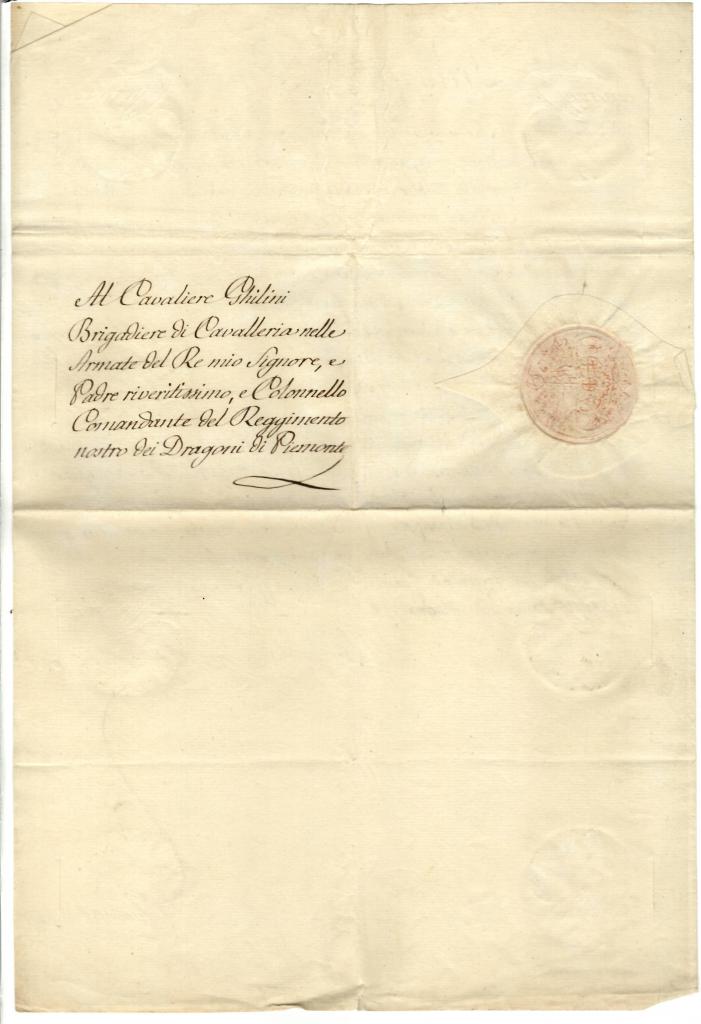 Al Cavaliere Ghilini
Brigadiere di Cavalleria nelle
Armate del Re mio Signore, e
Padre riveritissimo, e Colonnello
Comandante del Reggimento
nostro dei Dragoni di Piemonte